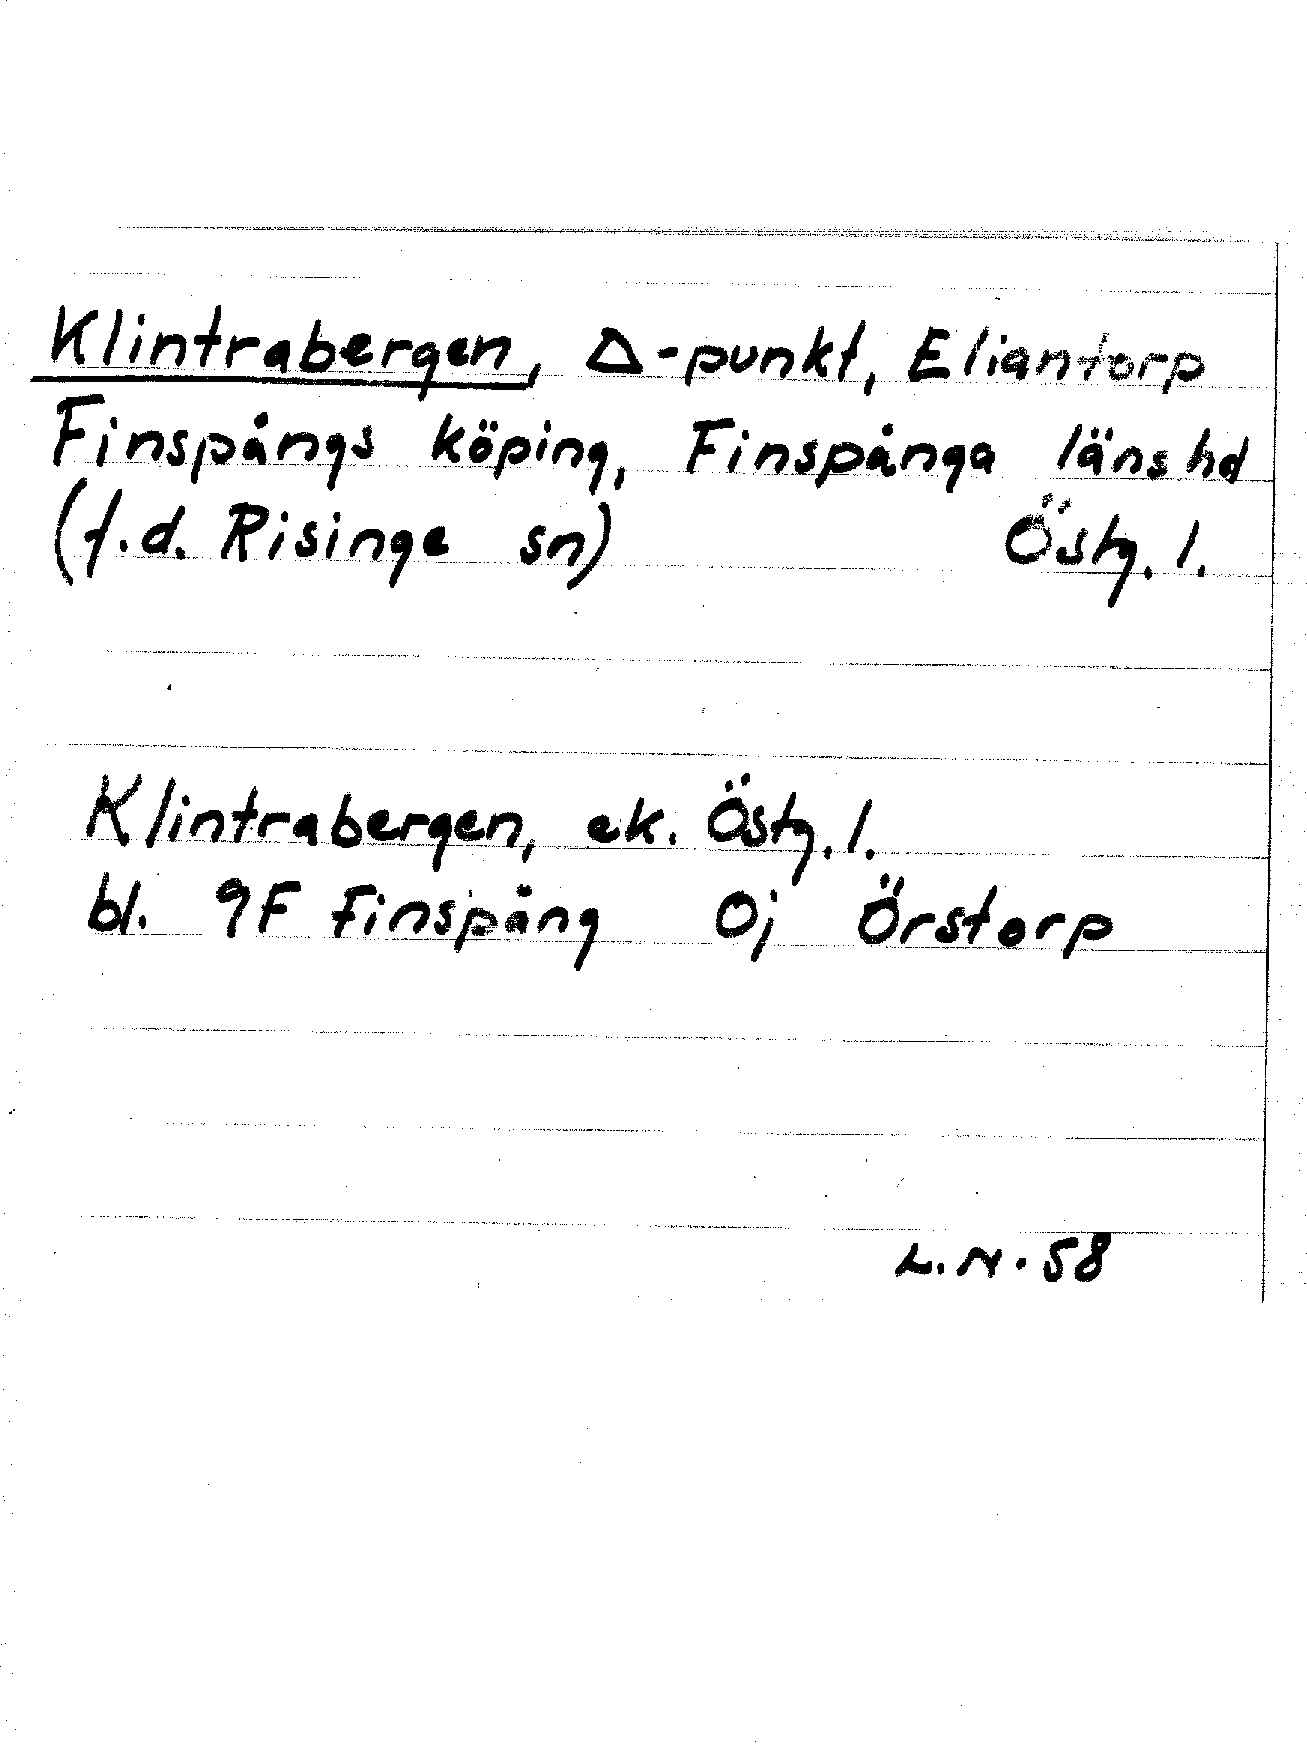 Klintrabergen, Δ-punkt, Eliantorp
Finspångs köping, Finspånga länshd
(f.d. Risinge sn) Östg. l.
Klintrabergen, ek. Östg. l.
bl. 9F Finspång 0j Örstorp
L.N. 58